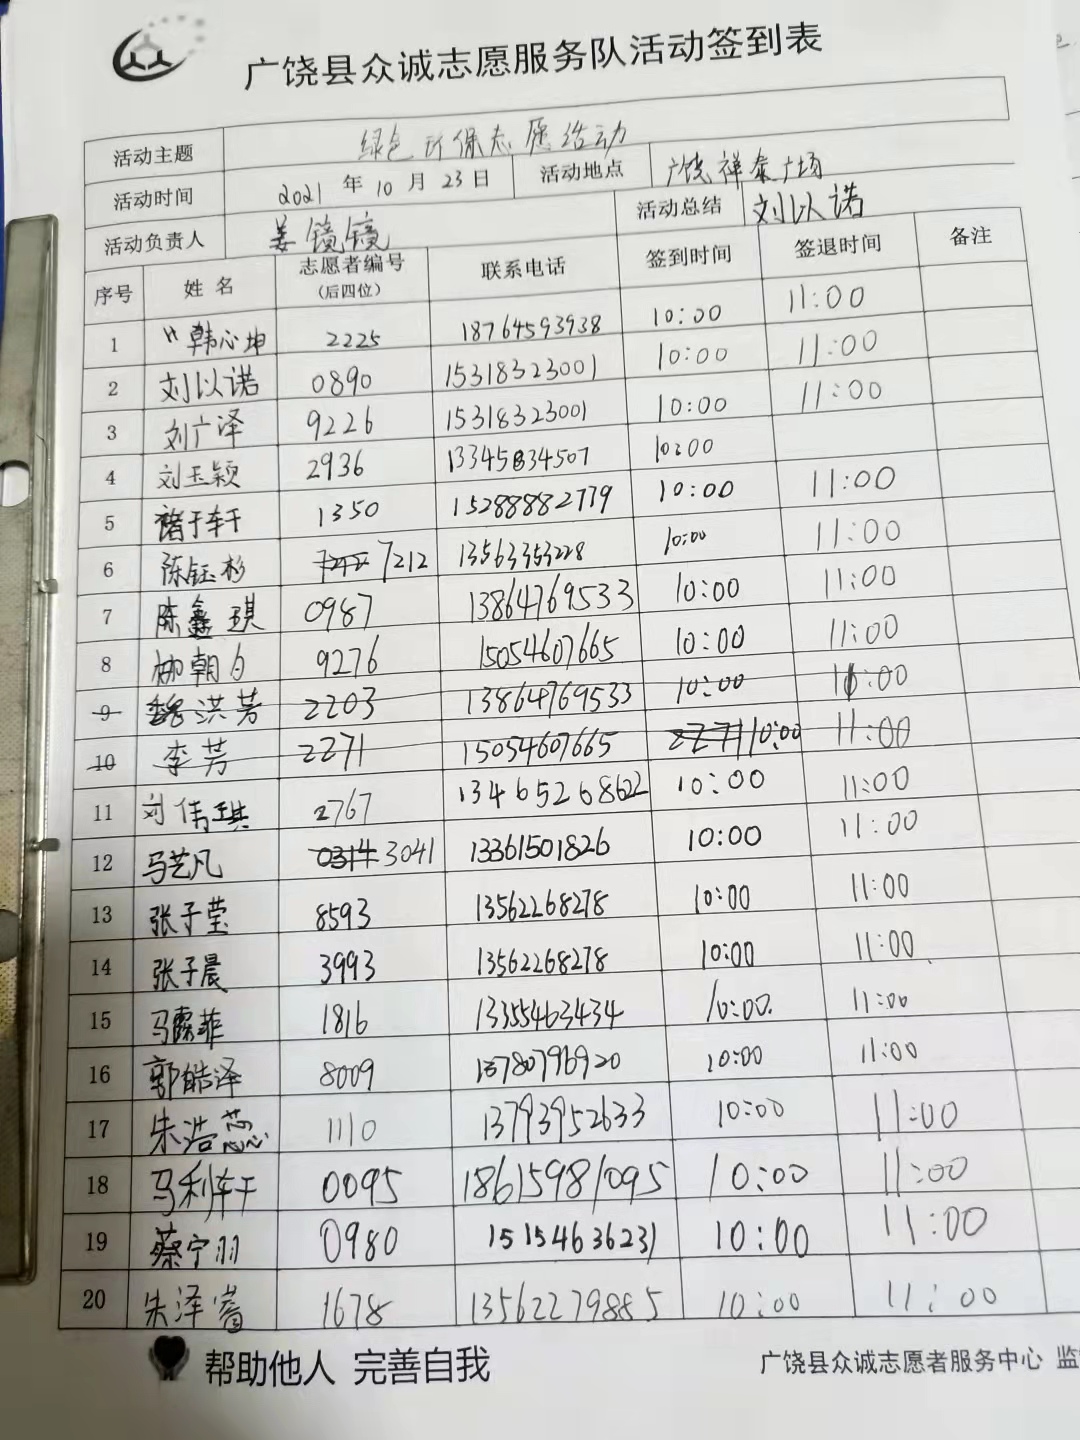 广饶县众诚志愿服务队活动签到表
活动主题 绿色环保志愿活动
活动时间 2021 年 10 月 23 日 活动地点 广饶祥泰广场
活动负责人 姜镜镜 活动总结 刘以诺
序号 姓名 志愿者编号(后四位) 联系电话 签到时间 签退时间 备注
1 韩心坤 2225 18764593938 10:00 11:00
2 刘以诺 0890 15318323001 10:00 11:00
3 刘广泽 9226 15318323001 10:00 11:00
4 刘玉颖 2936 13345834507 10:00
5 褚于轩 1350 15288882779 10:00 11:00
6 陈钰杉 7212 13563353228 10:00 11:00
7 陈鑫琪 0987 13864769533 10:00 11:00
8 柳朝白 9276 15054607665 10:00 11:00
9 魏洪芳 2203 13864769533 10:00 11:00
10 李芳 2271 15054607665 2271 10:00 11:00
11 刘倩琪 2767 13465268622 10:00 11:00
12 马艺凡 0314 3041 13361501826 10:00 11:00
13 张子莹 8593 13562268278 10:00 11:00
14 张子晨 3993 13562268278 10:00 11:00
15 马露菲 1816 13355463434 10:00 11:00
16 郭皓泽 8009 13780796920 10:00 11:00
17 朱浩蕊 1110 13793952633 10:00 11:00
18 马利轩 0095 18615981095 10:00 11:00
19 蔡宁羽 0980 15154636231 10:00 11:00
20 朱泽睿 1678 13562279885 10:00 11:00
帮助他人 完善自我
广饶县众诚志愿者服务中心 监